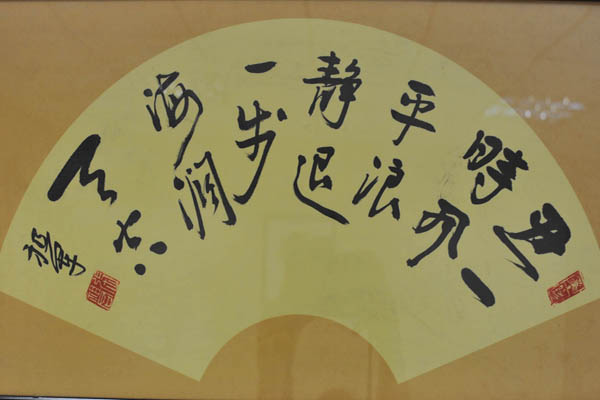 忍一
時风
平浪
静退
一步
海阔
天空